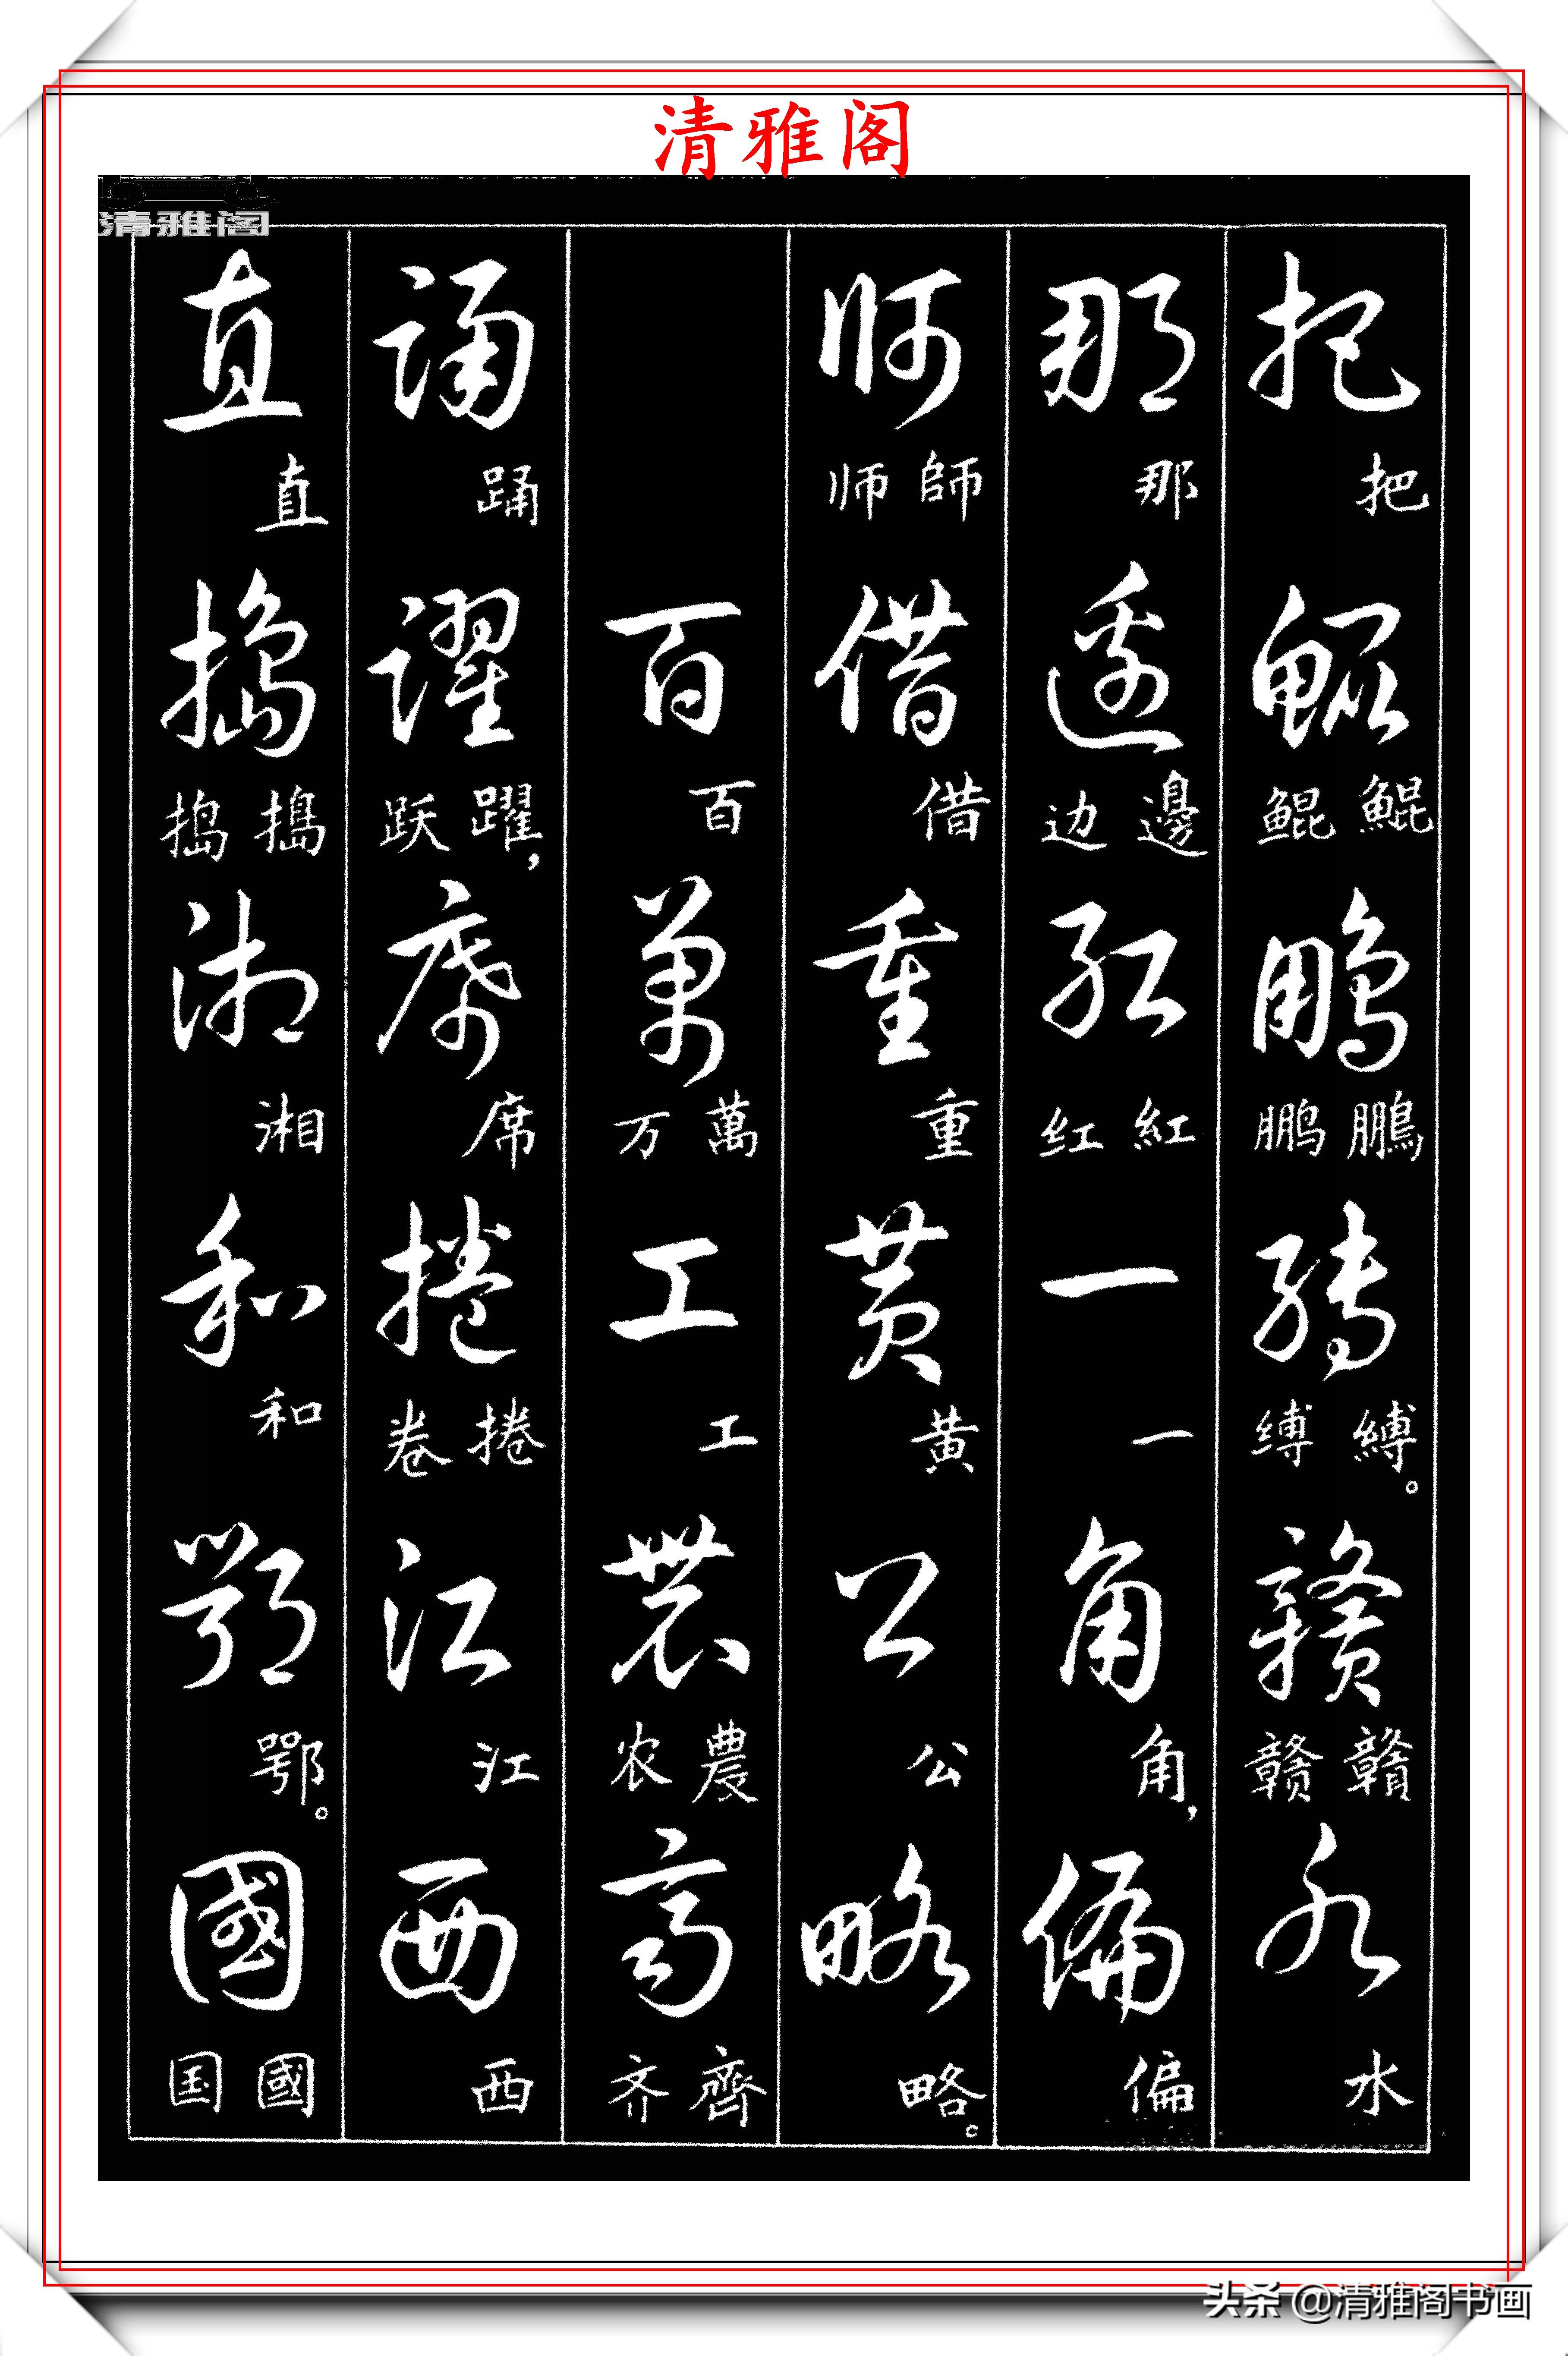 清雅阁
清雅阁
把 把 鯤 鯤 鲲 鵬 鵬 鹏 縛 縛。 缚 贛 贛 赣 水 水
那 那 邊 邊 边 紅 紅 红 一 一 角 角， 偏 偏
師 師 师 借 借 重 重 黄 黄 公 公 略 略。
百 百 萬 萬 万 工 工 農 農 农 齊 齊 齐
踊 踊 躍 躍， 跃 席 席 捲 捲 卷 江 江 西 西
直 直 搗 搗 捣 湘 湘 和 和 鄂 鄂。 國 國 国
头条 @清雅阁书画